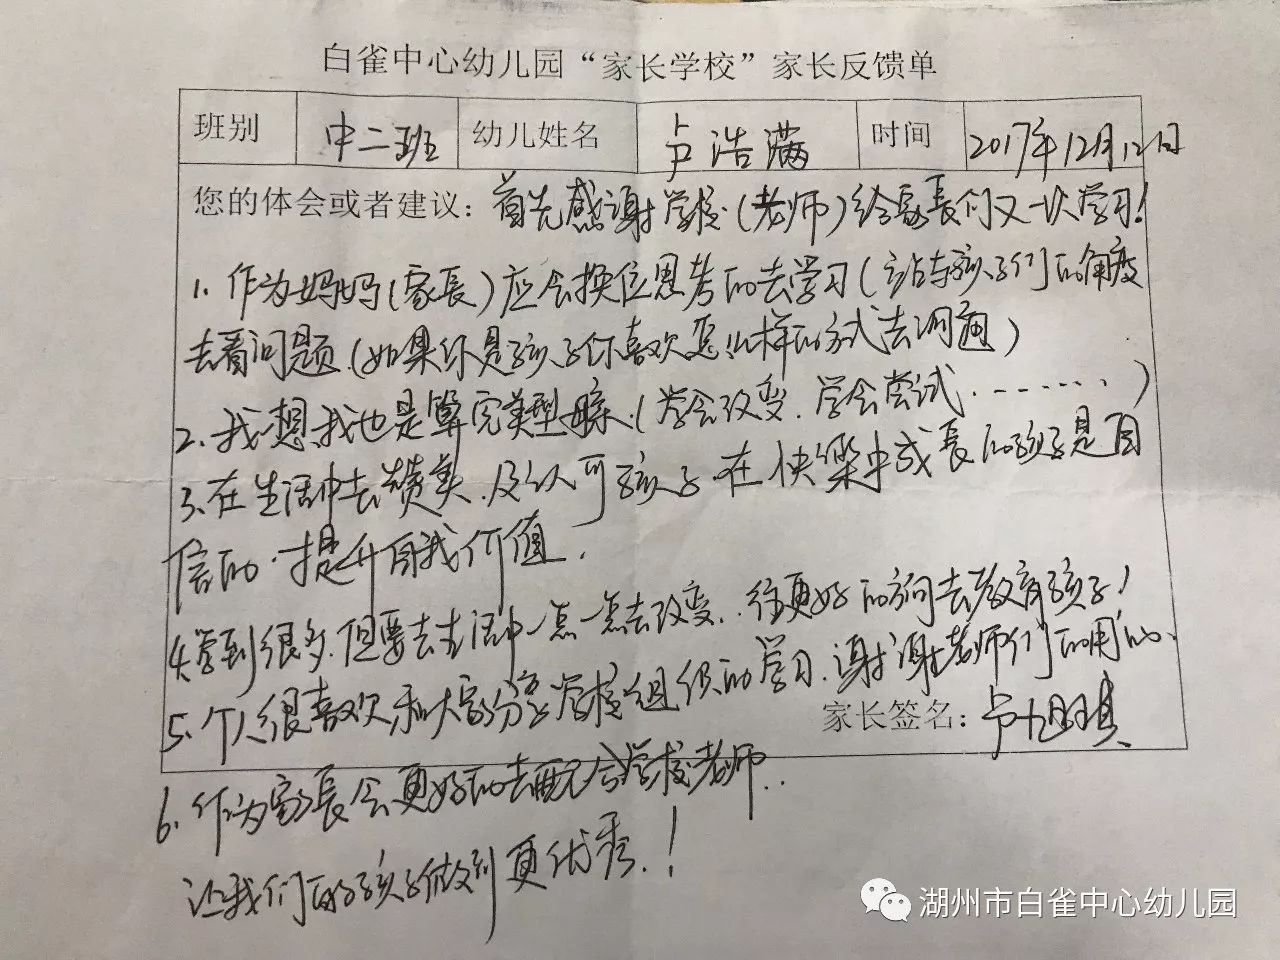 白雀中心幼儿园“家长学校”家长反馈单
班别 中二班 幼儿姓名 卢浩满 时间 2017年12月12日
您的体会或者建议：首先感谢学校(老师)给家長们又一次学习!
1. 作为妈妈(家長)应会换位思考的去学习(站与孩子们的角度
去看问题.(如果你是孩子你喜欢怎么样的方式去沟通)
2. 我想,我也是算完美型母亲.(学会改变.学会尝试.……)
3.在生活中去赞美.及认可孩子.在快樂中成長的孩子是自
信的.提升自我价值.
4.学到很多.但要去生活中一点一点去改变..往更好的方向去教育孩子!
5.个人很喜欢和大家分享学校组织的学习.谢谢老师们的用心.
家长签名：卢旭琪
6.作为家長会更好的去配合学校老师..
让我们的孩子做到更优秀.!
湖州市白雀中心幼儿园